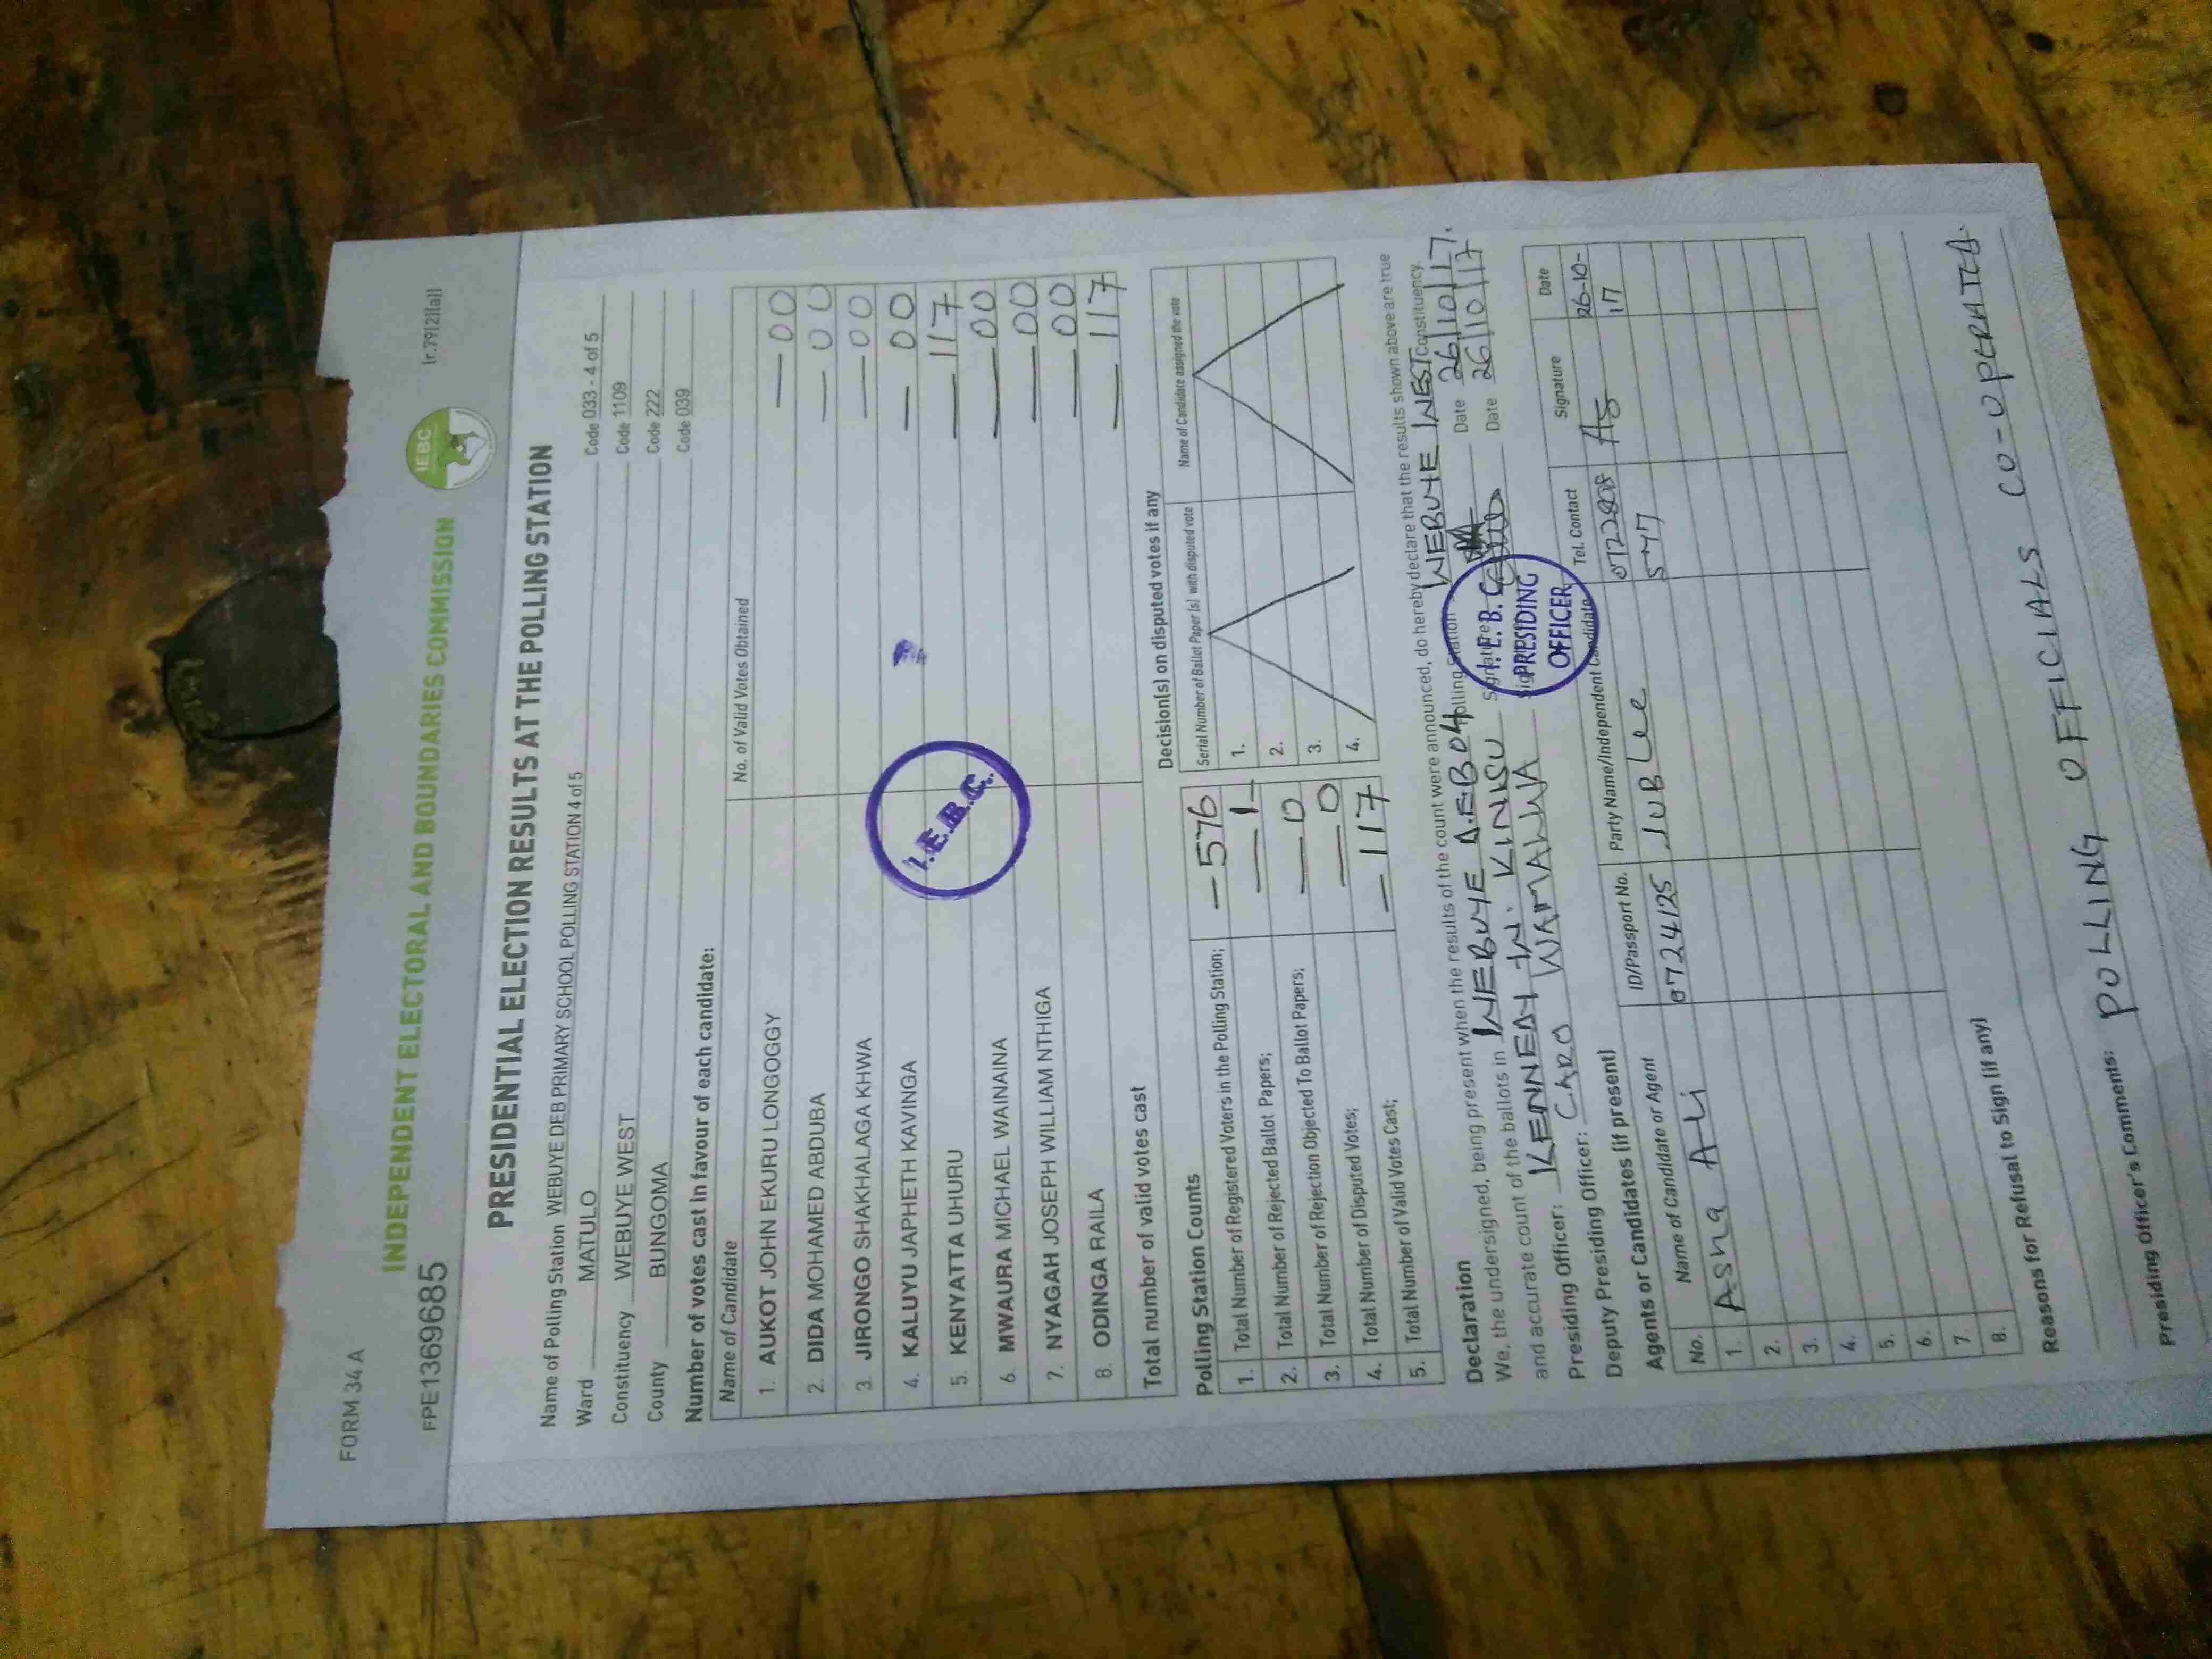 FORM 34 A
INDEPENDENT ELECTORAL AND BOUNDARIES COMMISSION
IEBC
(r.79(2)(a))
FPE1369685
PRESIDENTIAL ELECTION RESULTS AT THE POLLING STATION
Name of Polling Station WEBUYE DEB PRIMARY SCHOOL POLLING STATION 4 of 5 Code 033 - 4 of 5
Ward MATULO Code 1109
Constituency WEBUYE WEST Code 222
County BUNGOMA Code 039
Number of votes cast in favour of each candidate:
Name of Candidate No. of Valid Votes Obtained
1. AUKOT JOHN EKURU LONGOGGY — 00
2. DIDA MOHAMED ABDUBA — 00
3. JIRONGO SHAKHALAGA KHWA — 00
4. KALUYU JAPHETH KAVINGA — 00
5. KENYATTA UHURU — 117
6. MWAURA MICHAEL WAINAINA — 00
7. NYAGAH JOSEPH WILLIAM NTHIGA — 00
8. ODINGA RAILA — 00
Total number of valid votes cast — 117
I.E.B.C.
Polling Station Counts
1. Total Number of Registered Voters in the Polling Station; — 576
2. Total Number of Rejected Ballot Papers; — 1
3. Total Number of Rejection Objected To Ballot Papers; — 0
4. Total Number of Disputed Votes; — 0
5. Total Number of Valid Votes Cast; — 117
Decision(s) on disputed votes if any
Serial Number of Ballot Paper(s) with disputed vote Name of Candidate assigned the vote
1.
2.
3.
4.
Declaration
We, the undersigned, being present when the results of the count were announced, do hereby declare that the results shown above are true
and accurate count of the ballots in WEBUYE D.E.B 04 Polling Station WEBUYE WEST Constituency.
Presiding Officer: KENNEDY W. Signature Date 26/10/17.
Deputy Presiding Officer: CARO WAMALWA Date 26/10/17
I.E.B.C
PRESIDING
OFFICER
Agents or Candidates (if present)
No. Name of Candidate or Agent ID/Passport No. Party Name/Independent Candidate Tel. Contact Signature Date
1. Asna Ali 0724125 JUBLee 26-10-
17
2.
3.
4.
5.
6.
7.
8.
Reasons for Refusal to Sign (if any)
Presiding Officer's Comments: POLLING OFFICIALS CO-OPERATED.